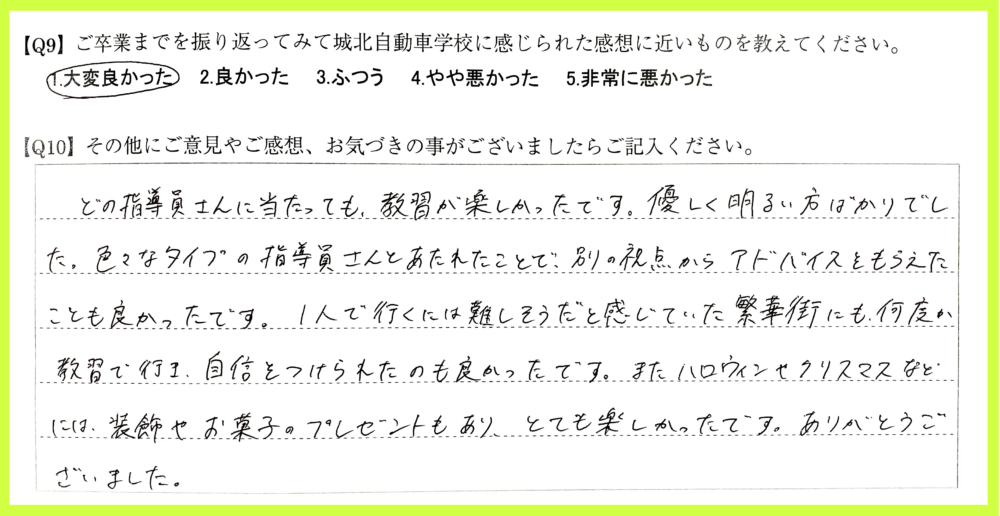 【Q9】ご卒業までを振り返ってみて城北自動車学校に感じられた感想に近いものを教えてください。
1.大変良かった 2.良かった 3.ふつう 4.やや悪かった 5.非常に悪かった
【Q10】その他にご意見やご感想、お気づきの事がございましたらご記入ください。
どの指導員さんに当たっても、教習が楽しかったです。優しく明るい方ばかりでし
た。色々なタイプの指導員さんとあたれたことで、別の視点からアドバイスをもらえた
ことも良かったです。1人で行くには難しそうだと感じていた繁華街にも、何度か
教習で行き、自信をつけられたのも良かったです。またハロウィンやクリスマスなど
には、装飾やお菓子のプレゼントもあり、とても楽しかったです。ありがとうご
ざいました。